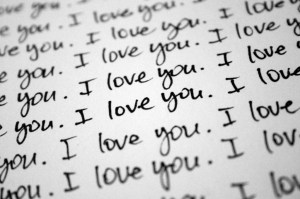 love you.
love you. I love you.
ve you. I love you. I love
you. I love you. I love you.
e you. I love you. I love you.
e you. I love you. I love you.
you. I love you. I love
you. I love you. I love
you. I love you. I lov
I lov